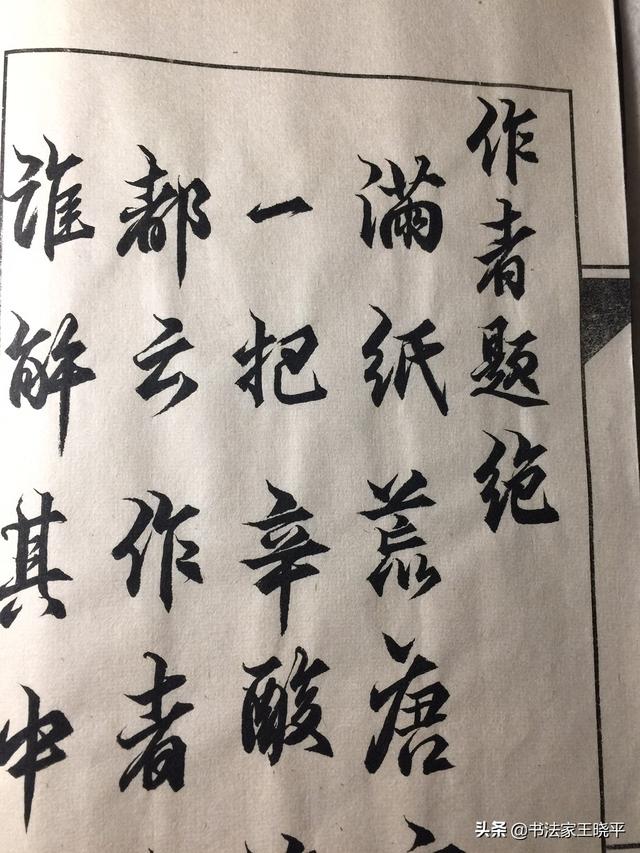 作者题绝
满纸荒唐
一把辛酸
都云作者
谁解其中
头条 @书法家王晓平